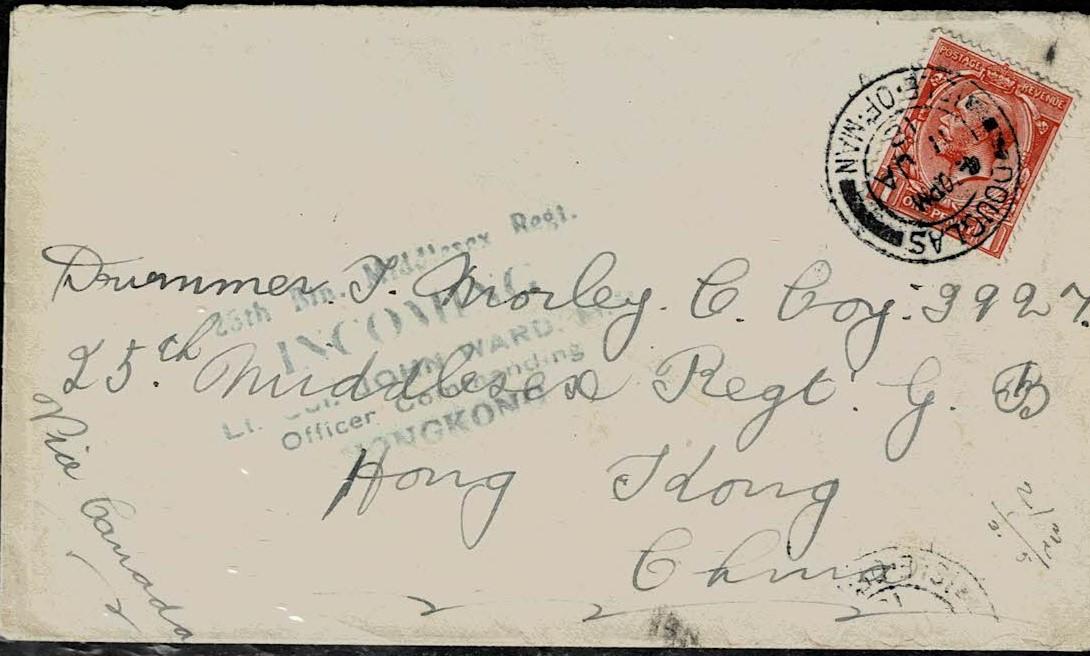 POSTAGE REVENUE
ONE PENNY
DOUGLAS
ISLE·OF·MAN
25th Bn. Middlesex Regt.
INCOMING
Lt. Col. JOHN WARD,
Officer Commanding
HONGKONG
Drummer T. Morley. C. Coy. 3927.
25.th Middlesex Regt. G. B
Hong Kong
China
Via Canada
ISLE·O